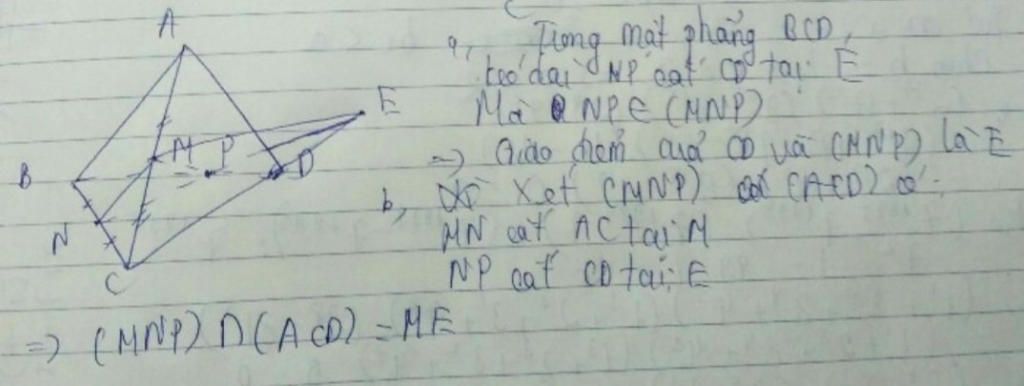 A
E
M
P
D
B
N
C
a, Trong mặt phẳng BCD,
kéo dài NP cắt CD tại E
Mà NP∈ (MNP)
=> Giao điểm của CD và (MNP) là E
b, Xét (MNP) và (ACD) có:
MN cắt AC tại M
NP cắt CD tại E
=> (MNP) ∩ (ACD) = ME